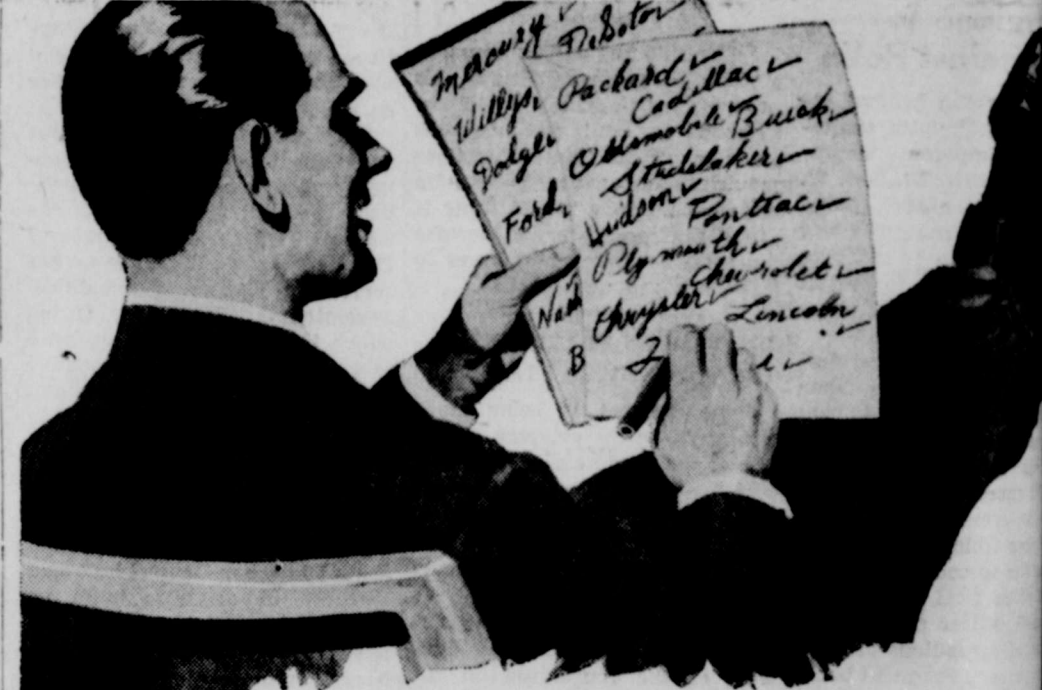 Mercury DeSoto
Willys
Dodge
Ford
Nash
B
Packard
Cadillac
Oldsmobile
Buick
Studebaker
Hudson
Pontiac
Plymouth
Chevrolet
Chrysler
Lincoln